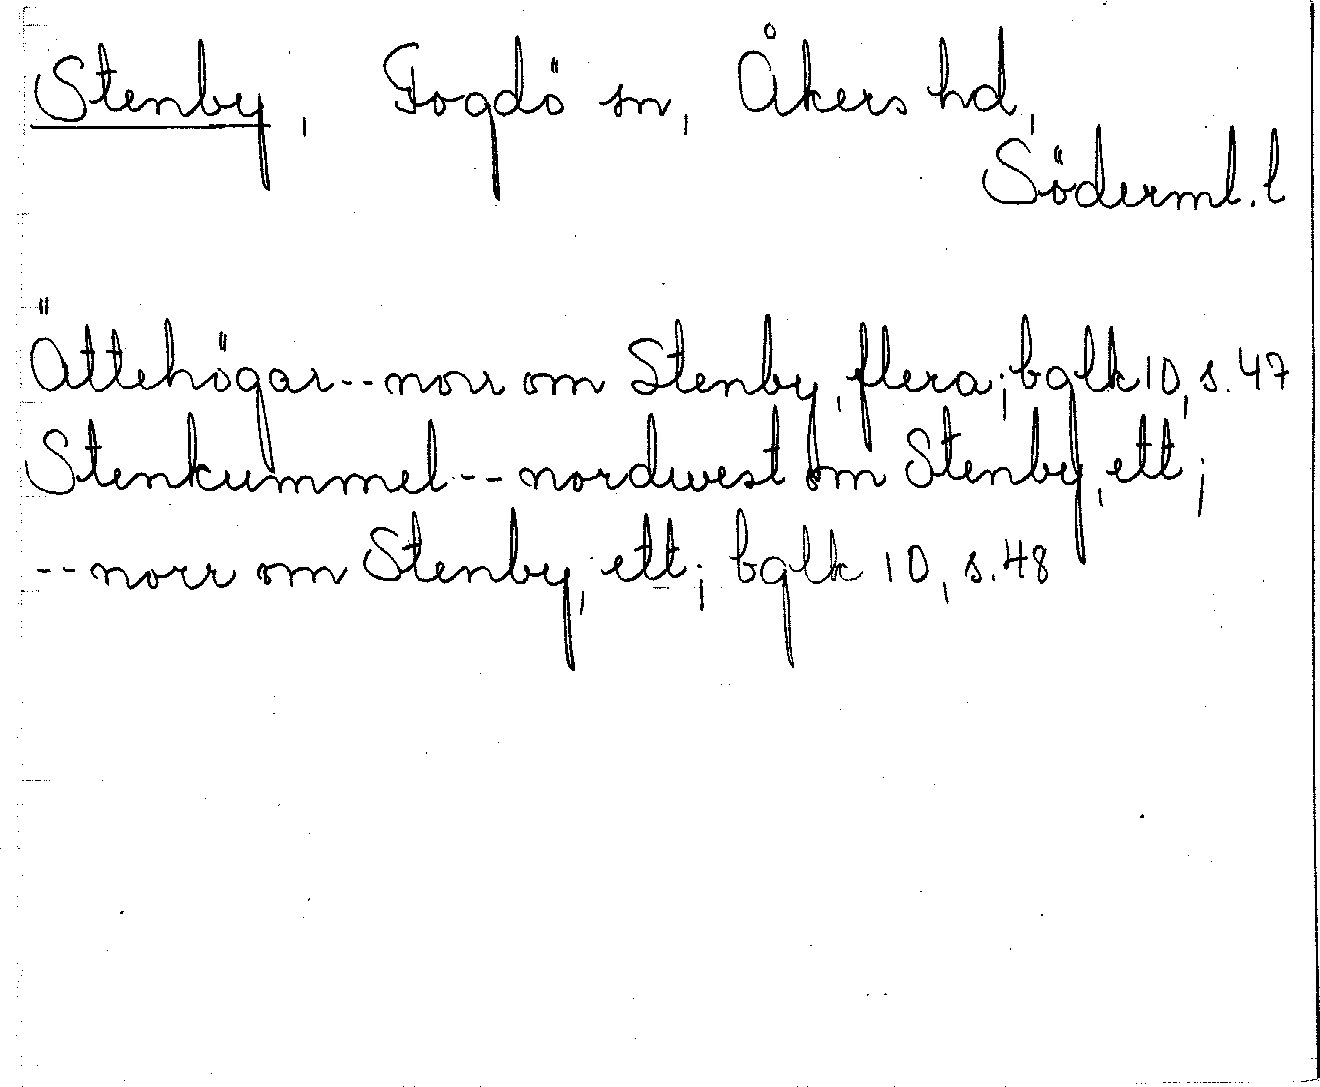 Stenby, Fogdö sn, Åkers hd,
Söderml. l
Ättehögar -- norr om Stenby, flera; bglk 10, s. 47
Stenkummel -- nordwest om Stenby, ett;
-- norr om Stenby, ett; bglk 10, s. 48